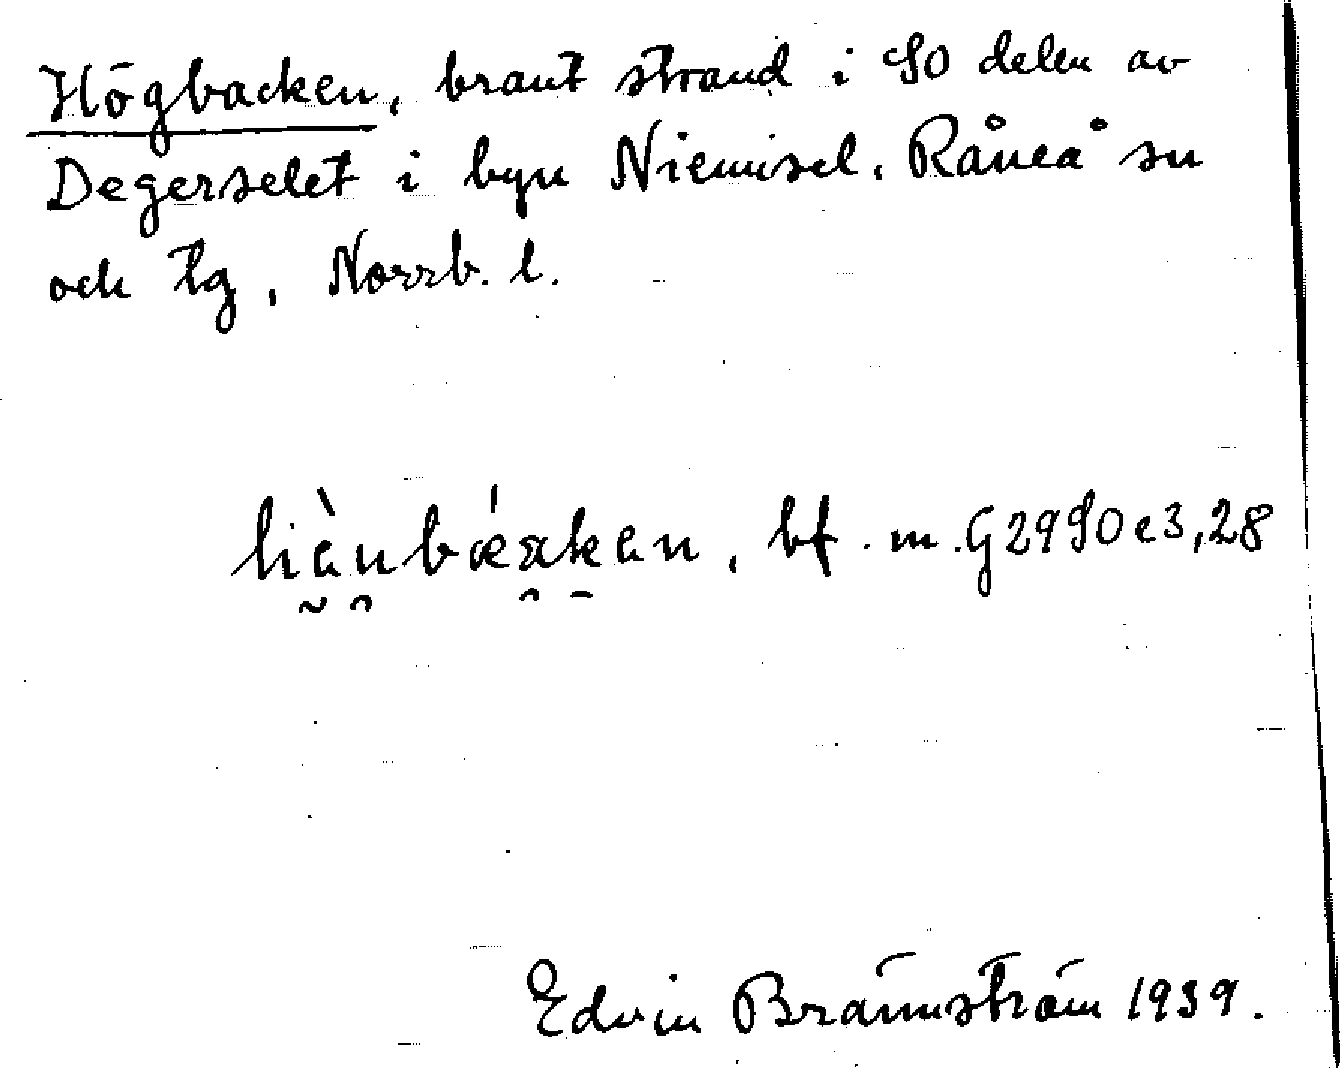 Högbacken, brant strand i SO delen av
Degerselet i byn Niemisel. Råneå sn
och tg, Norrb. l.
bf. m. G29SOe3,28
Edvin Brännström 1939.